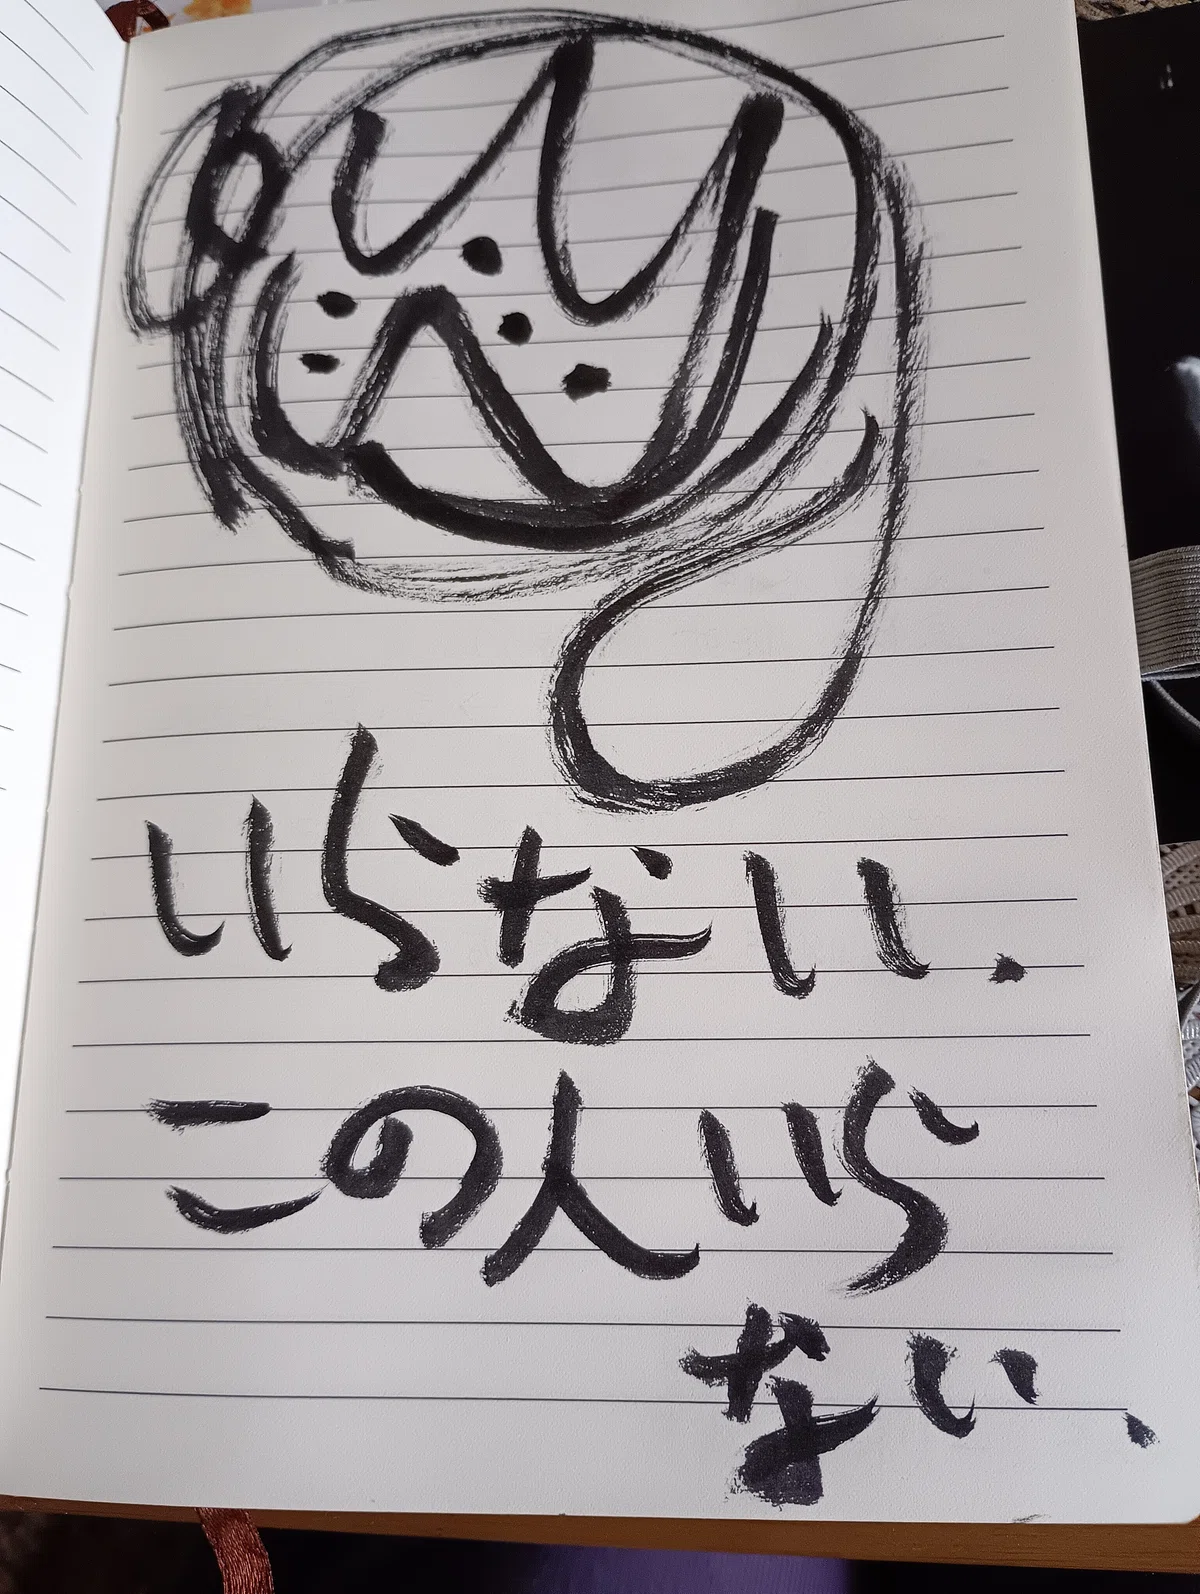 いらない.
この人いら
ない.